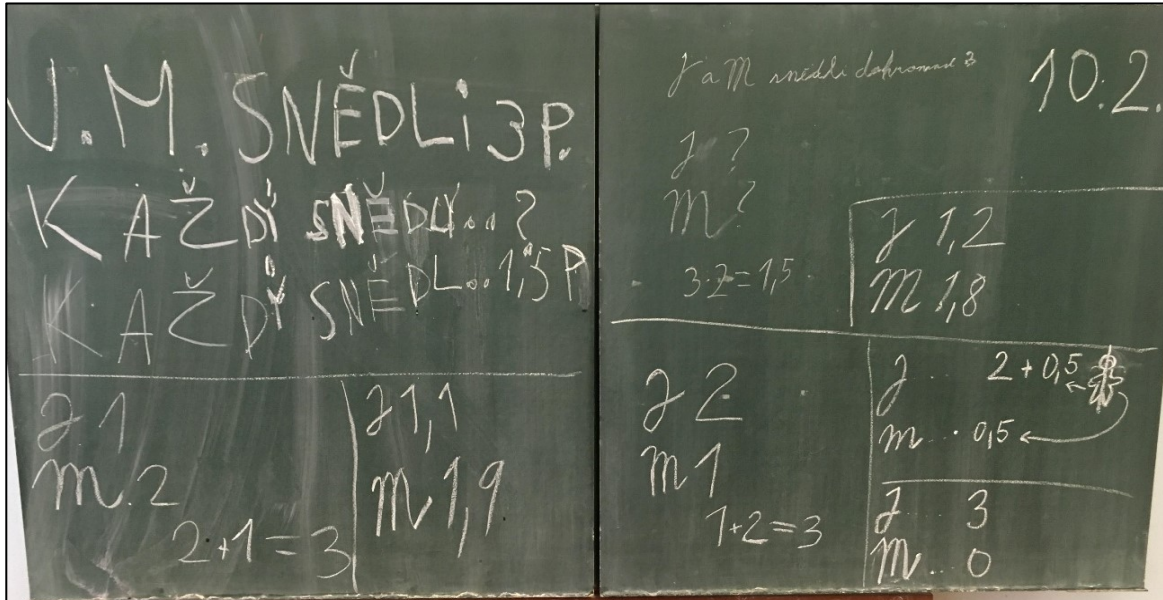 J.M. SNĚDLi 3 P.
KAŽDÝ SNĚDLÝ... ?
KAŽDÝ SNĚDL... 1,5 P
J 1
M. 2
2+1=3
J 1,1
M 1,9
J a M snědli dohromad 3
10.2.
J ?
M ?
3:2=1,5
J 1,2
M 1,8
J 2
M 1
1+2=3
J ... 2 + 0,5
M ... 0,5
J ... 3
M ... 0